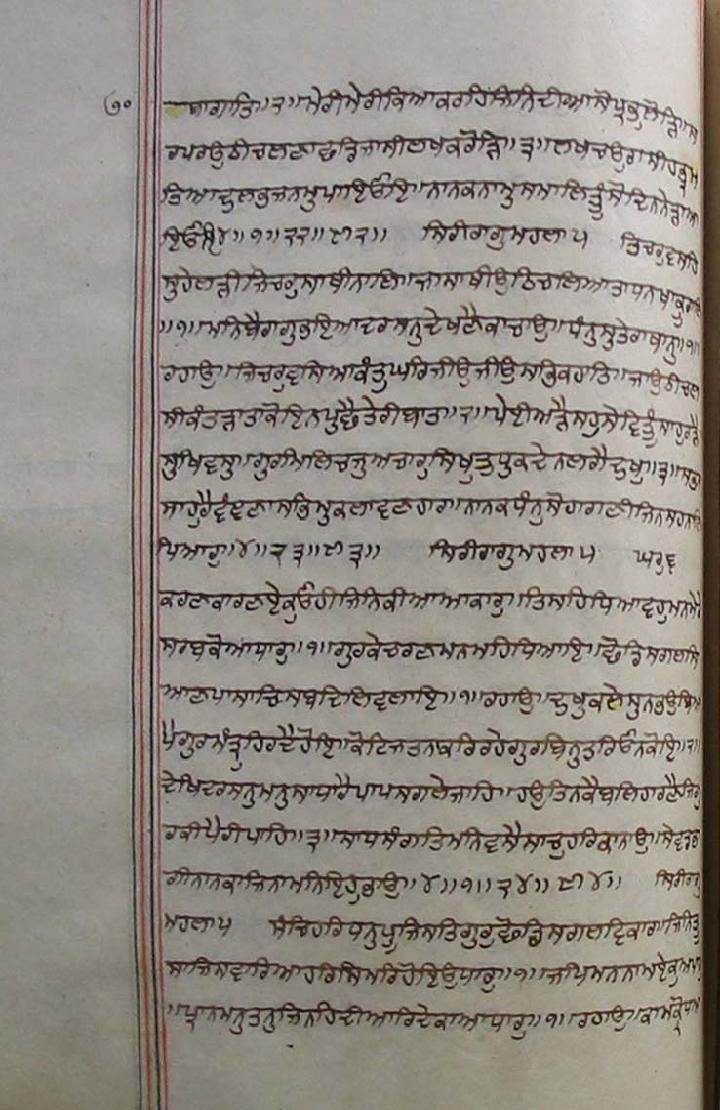 ੭੦ ਬਾਗਾਤਿ॥੨॥ਮੇਰੀਮੇਰੀਕਿਆਕਰਹਿਜਿਨਿਦੀਆਸੋਪ੍ਰਭੁਲੋੜਿ॥ਸ
ਰਪਰਉਠੀਚਲਣਾਛਡਿਜਾਸੀਲਖਕਰੋੜਿ॥੩॥ਲਖਚਉਰਾਸੀਹਭ੍ਰਮ
ਤਿਆਦੁਲਭੁਜਨਮੁਪਾਇਓਇ॥ਨਾਨਕਨਾਮੁਸਮਾਲਿਤੂੰਸੋਦਿਨਨੇੜਾਆ
ਇਓਇ॥੪॥੧॥੨੨॥੯੨॥ ਸਿਰੀਰਾਗੁਮਹਲਾ੫ ਤਿਚਰੁਵਸਹਿ
ਸੁਹੇਲੜੀਜਿਚਰੁਸਾਥੀਨਾਲਿ॥ਜਾਸਾਥੀਉਠਿਚਲਿਆਤਾਧਨਖਾਕੂਰਾਲਿ
॥੧॥ਮਨਿਬੈਰਾਗੁਭਇਆਦਰਸਨੁਦੇਖਣੈਕਾਚਾਉ॥ਧੰਨੁਸੁਤੇਰਾਥਾਨੁ॥੧॥
ਰਹਾਉ॥ਜਿਚਰੁਵਸਿਆਕੰਤੁਘਰਿਜੀਉਜੀਉਸਭਿਕਹਾਤਿ॥ਜਾਉਠੀਚਲ
ਸੀਕੰਤੜਾਤਾਕੋਇਨਪੁਛੈਤੇਰੀਬਾਤ॥੨॥ਪੇਈਅੜੈਸਹੁਸੇਵਿਤੂੰਸਾਹੁਰੜੈ
ਸੁਖਿਵਸੁ॥ਗੁਰਮਿਲਿਚਜੁਅਚਾਰੁਸਿਖੁਤੁਧੁਕਦੇਨਲਗੈਦੁਖੁ॥੩॥ਸਭਨਾ
ਸਾਹੁਰੈਵੰਞਣਾਸਭਿਮੁਕਲਾਵਣਹਾਰ॥ਨਾਨਕਧੰਨੁਸੋਹਾਗਣੀਜਿਨਸਹਨਾਲਿ
ਪਿਆਰੁ॥੪॥੨੩॥੯੩॥ ਸਿਰੀਰਾਗੁਮਹਲਾ੫ ਘਰੁ੬
ਕਰਣਕਾਰਣਏਕੁਓਹੀਜਿਨਿਕੀਆਆਕਾਰੁ॥ਤਿਸਹਿਧਿਆਵਹੁਮਨਮੇਰੇ
ਸਰਬਕੋਆਧਾਰੁ॥੧॥ਗੁਰਕੇਚਰਣਮਨਮਹਿਧਿਆਇ॥ਛੋਡਿਸਗਲਸਿ
ਆਣਪਾਸਾਚਿਸਬਦਿਲਿਵਲਾਇ॥੧॥ਰਹਾਉ॥ਦੁਖੁਕਲੇਸੁਨਭਉਬਿਆ
ਪੈਗੁਰਮੰਤ੍ਰੁਹਿਰਦੈਹੋਇ॥ਕੋਟਿਜਤਨਕਰਿਰਹੇਗੁਰਬਿਨੁਤਰਿਓਨਕੋਇ॥੨॥
ਦੇਖਿਦਰਸਨੁਮਨੁਸਾਧਾਰੈਪਾਪਸਗਲੇਜਾਹਿ॥ਹਉਤਿਨਕੈਬਲਿਹਾਰਣੈਜਿਗੁ
ਰਕੀਪੈਰੀਪਾਹਿ॥੩॥ਸਾਧਸੰਗਤਿਮਨਿਵਸੈਸਾਚੁਹਰਿਕਾਨਾਉ॥ਸੇਵਡਭਾ
ਗੀਨਾਨਕਾਜਿਨਾਮਨਿਇਹੁਭਾਉ॥੪॥੧॥੨੪॥੯੪॥ ਸਿਰੀਰਾਗੁ
ਮਹਲਾ੫ ਸੰਚਿਹਰਿਧਨੁਪੂਜਿਸਤਿਗੁਰੁਛੋਡਿਸਗਲਵਿਕਾਰ॥ਜਿਨਿਤੂੰ
ਸਾਜਿਸਵਾਰਿਆਹਰਿਸਿਮਰਿਹੋਇਉਧਾਰੁ॥੧॥ਜਪਿਮਨਨਾਮਏਕੁਅਪਾਰੁ
॥ਪ੍ਰਾਨਮਨੁਤਨੁਜਿਨਹਿਦੀਆਰਿਦੇਕਾਆਧਾਰੁ॥੧॥ਰਹਾਉ॥ਕਾਮਕ੍ਰੋਧਅ